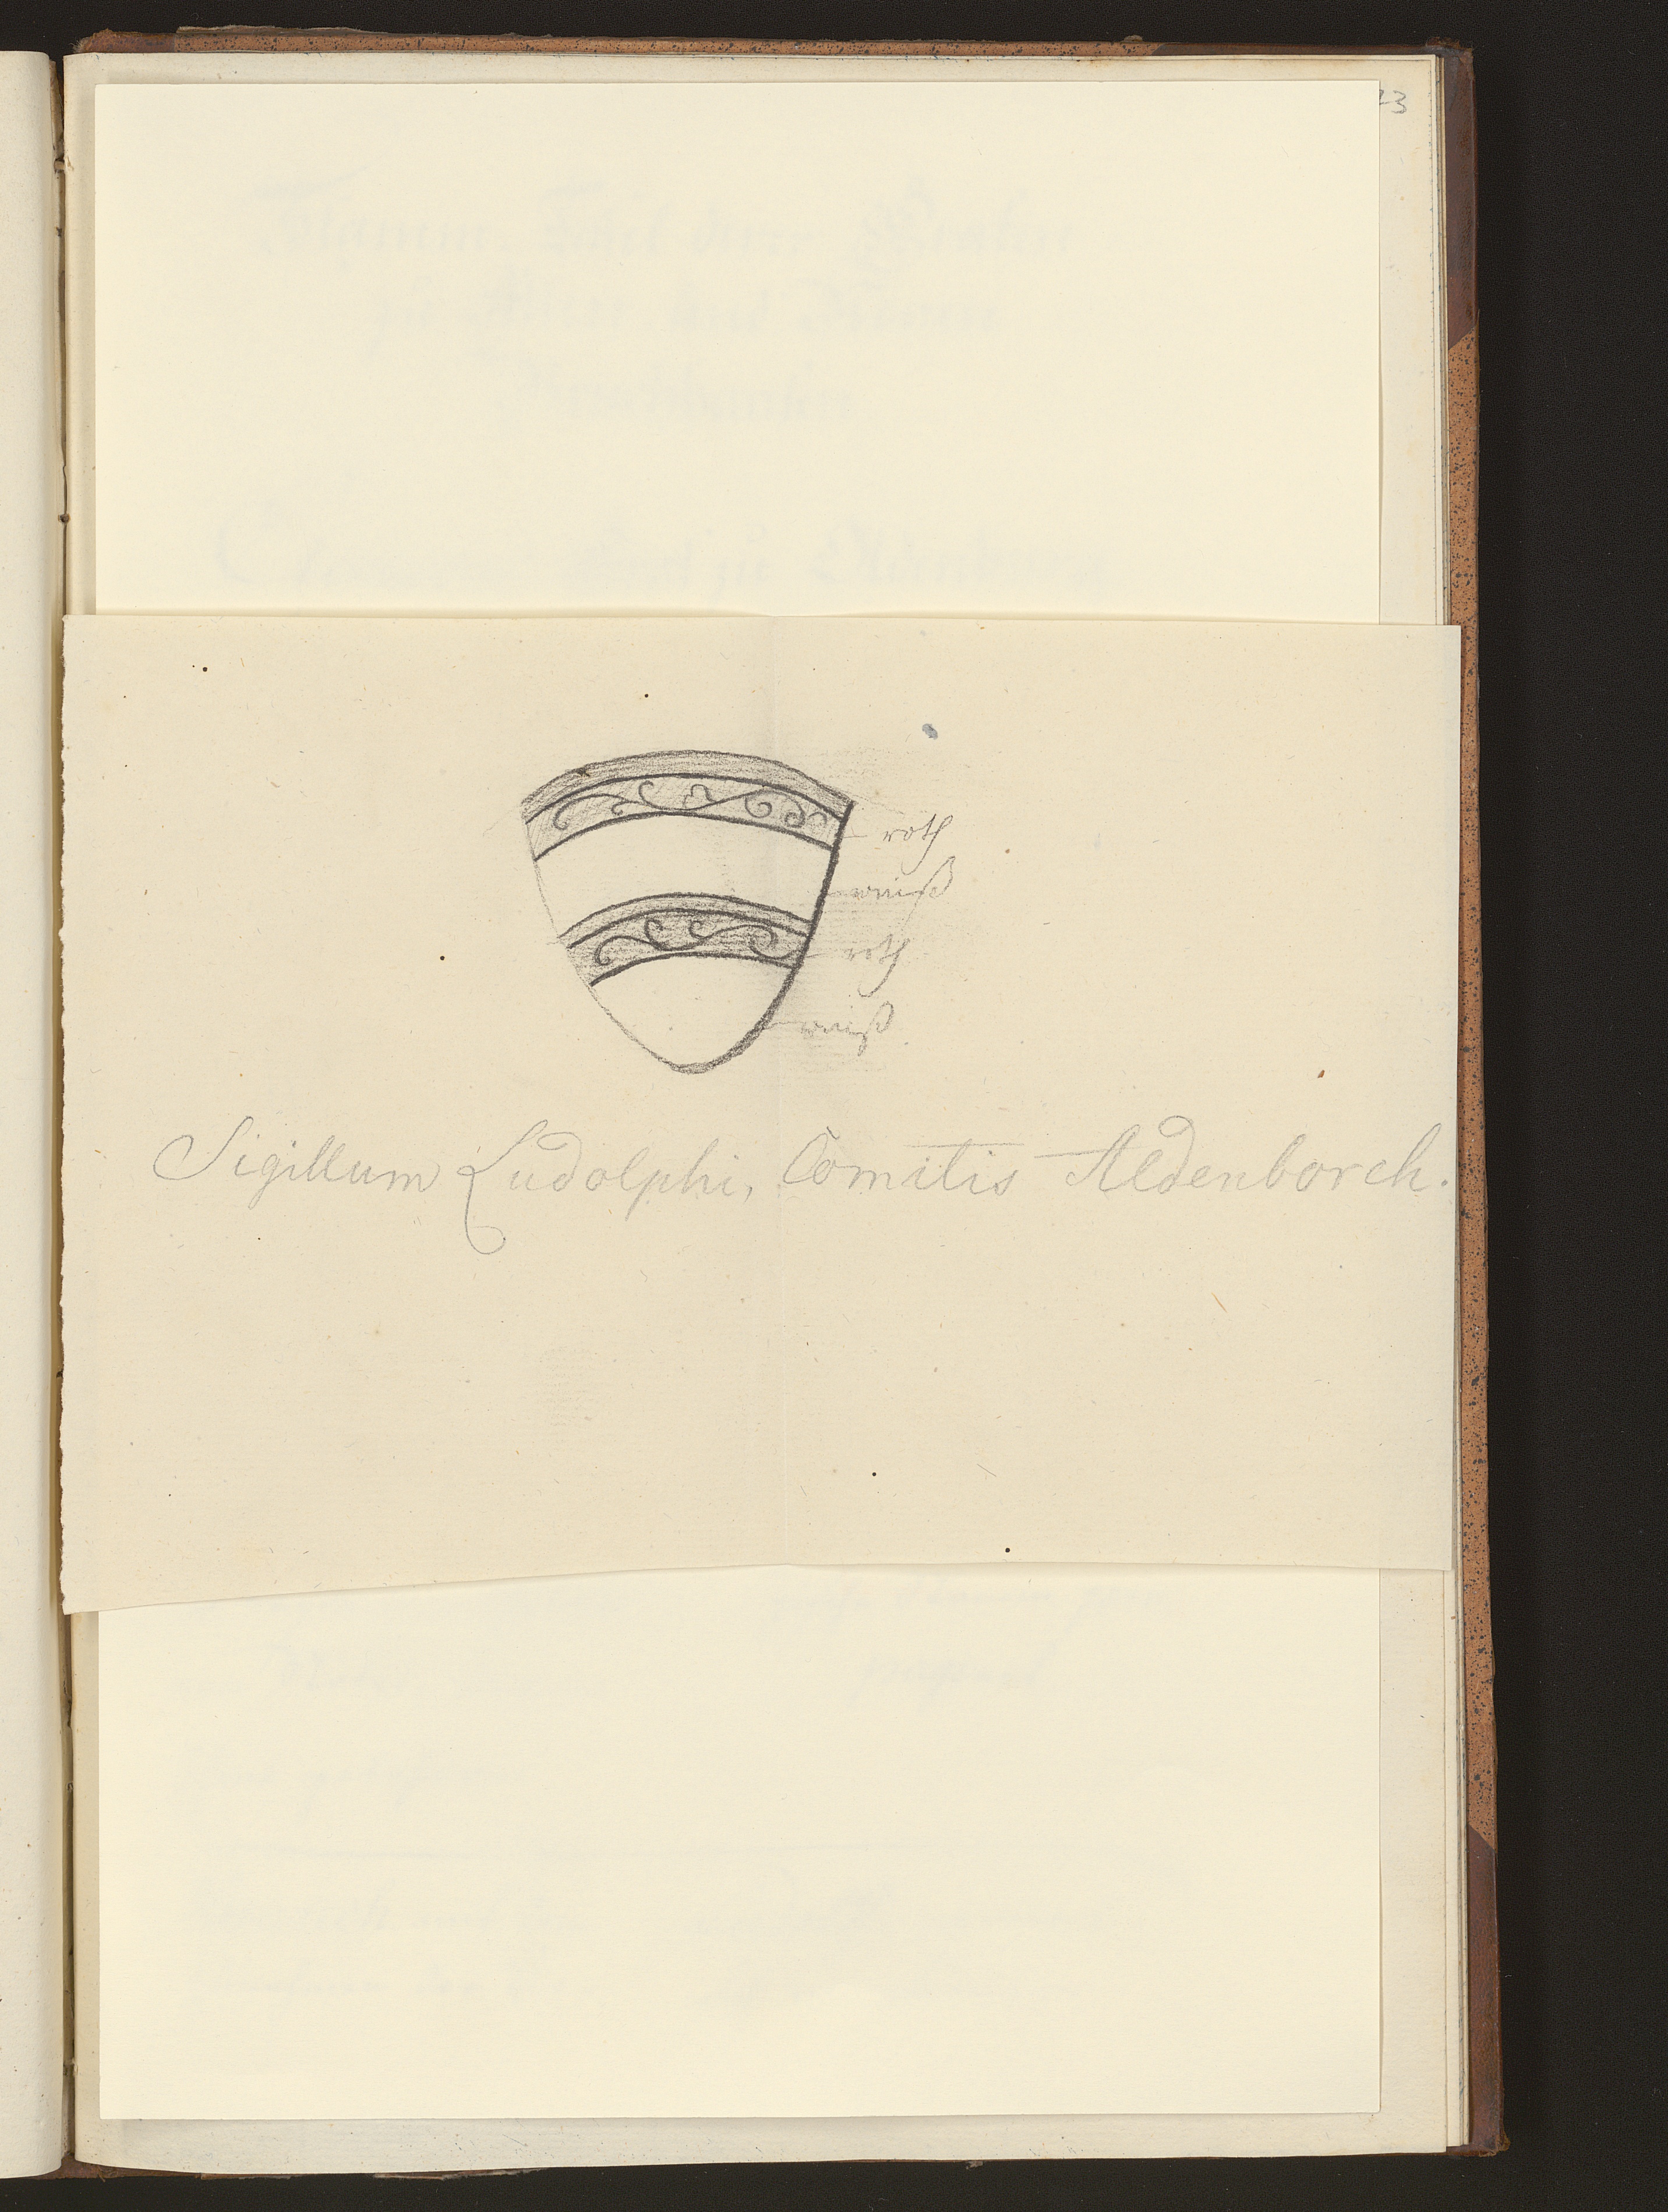 23
roth
weiß
roth
weiß
Sigillum Ludolphi, Comitis Aldenborch.